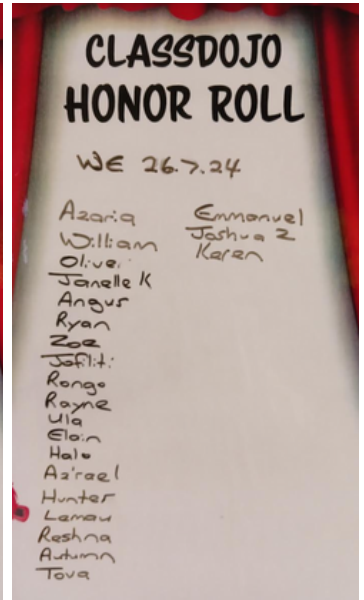 CLASSDOJO
HONOR ROLL
WE 26.7.24
Azaria
William
Oliver
Janelle K
Angus
Ryan
Zoe
Jofiliti
Rongo
Rayne
Ula
Eloin
Halo
Az'rael
Hunter
Lemau
Reshna
Autumn
Tova
Emmanuel
Joshua Z
Karen